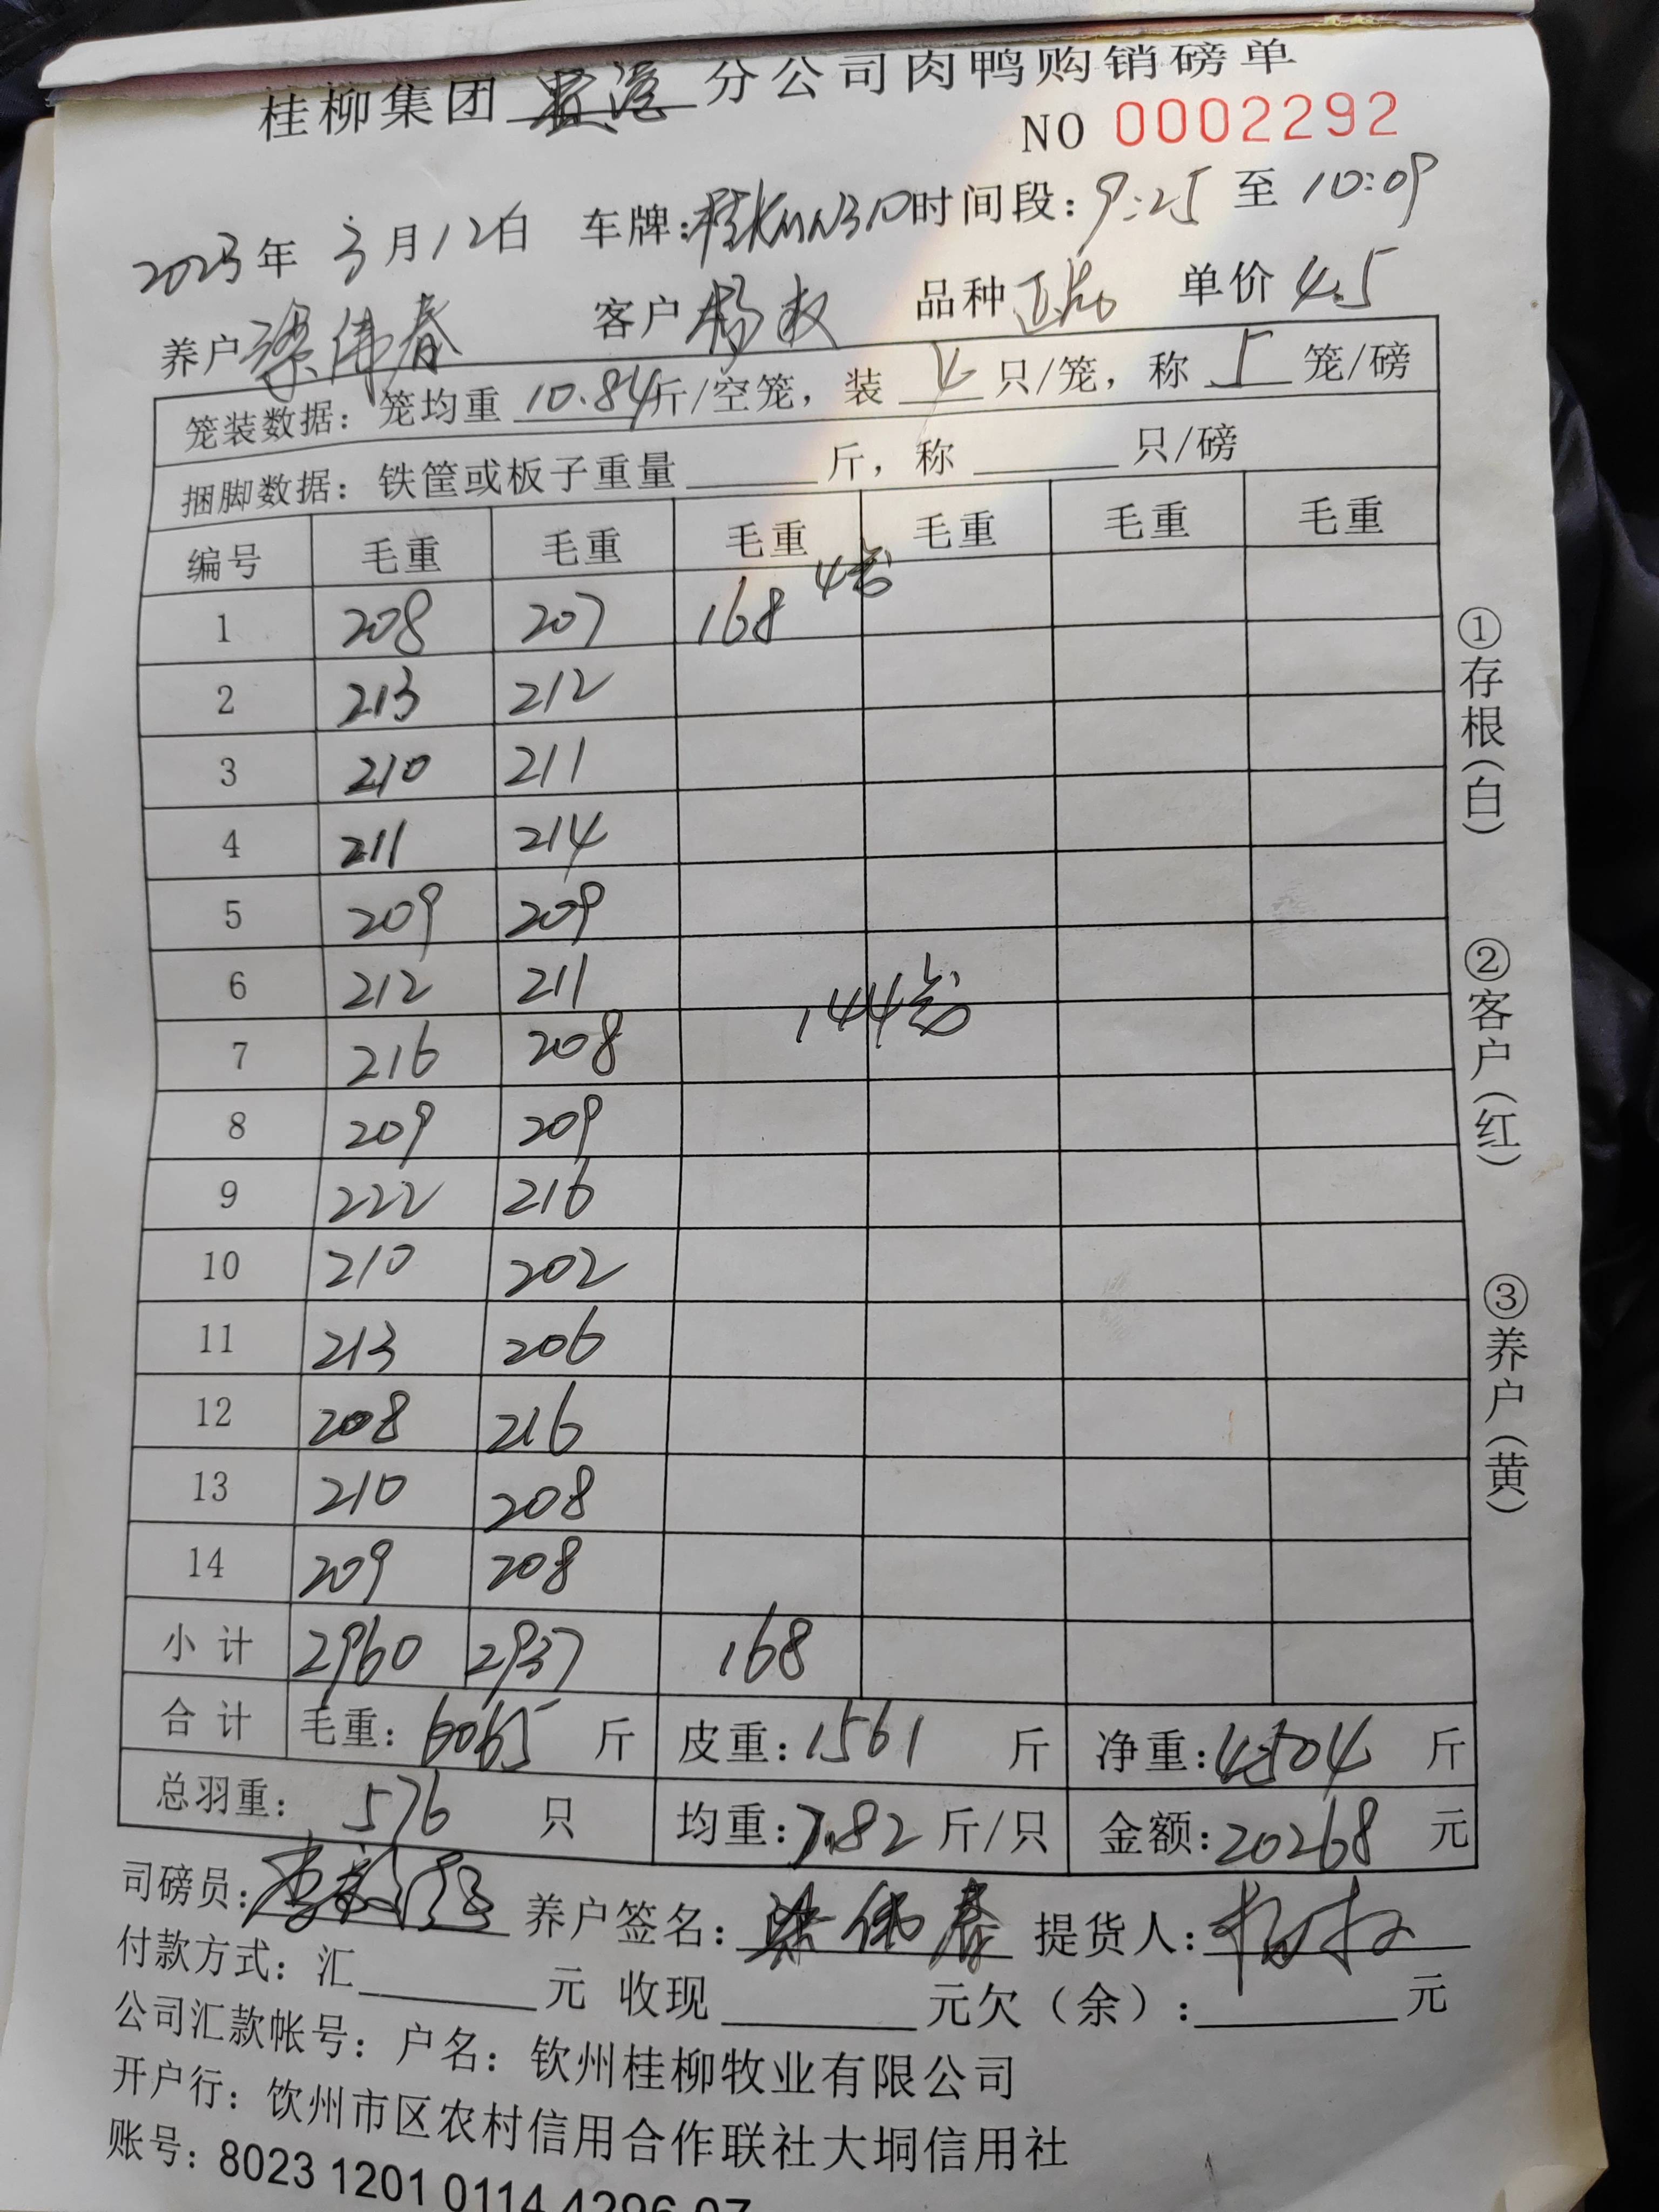 桂柳集团 贵港 分公司肉鸭购销磅单
NO 0002292
2023年 3月12日 车牌:桂KMN310 时间段:9:25 至 10:09
养户 梁伟春 客户 杨权 品种 正品 单价 4.5
笼装数据:笼均重 10.84 斤/空笼,装 4 只/笼,称 5 笼/磅
捆脚数据:铁筐或板子重量 斤,称 只/磅
编号 毛重 毛重 毛重 毛重 毛重 毛重
1 208 207 168 4台
2 213 212
3 210 211
4 211 214
5 209 209
6 212 211
144台
7 216 208
8 209 209
9 222 216
10 210 202
11 213 206
12 208 216
13 210 208
14 209 208
小计 2960 2937 168
合计 毛重:6065 斤 皮重:1561 斤 净重:4504 斤
总羽重:576 只 均重:7.82 斤/只 金额:20268 元
司磅员: 养户签名:梁伟春 提货人:杨权
付款方式:汇 元 收现 元欠(余): 元
公司汇款帐号:户名:钦州桂柳牧业有限公司
开户行:饮州市区农村信用合作联社大垌信用社
账号:8023 1201 0114 4296 07
①存根(白)
②客户(红)
③养户(黄)